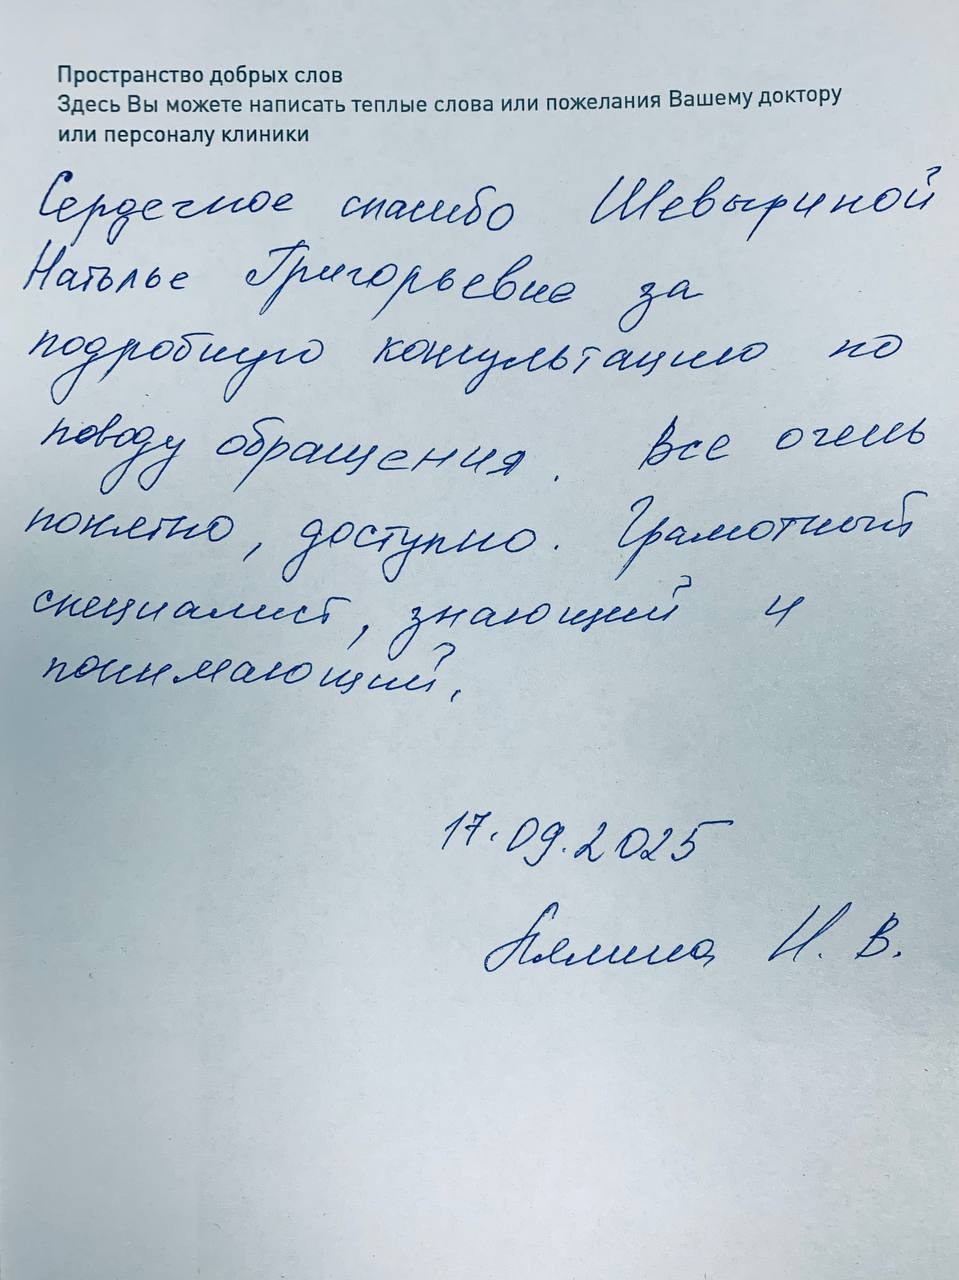 Пространство добрых слов
Здесь Вы можете написать теплые слова или пожелания Вашему доктору
или персоналу клиники
Сердечное спасибо Шевыриной
Наталье Григорьевне за
подробную консультацию по
поводу обращения. Все очень
понятно, доступно. Грамотный
специалист, знающий и
понимающий.
17.09.2025
Н. В.